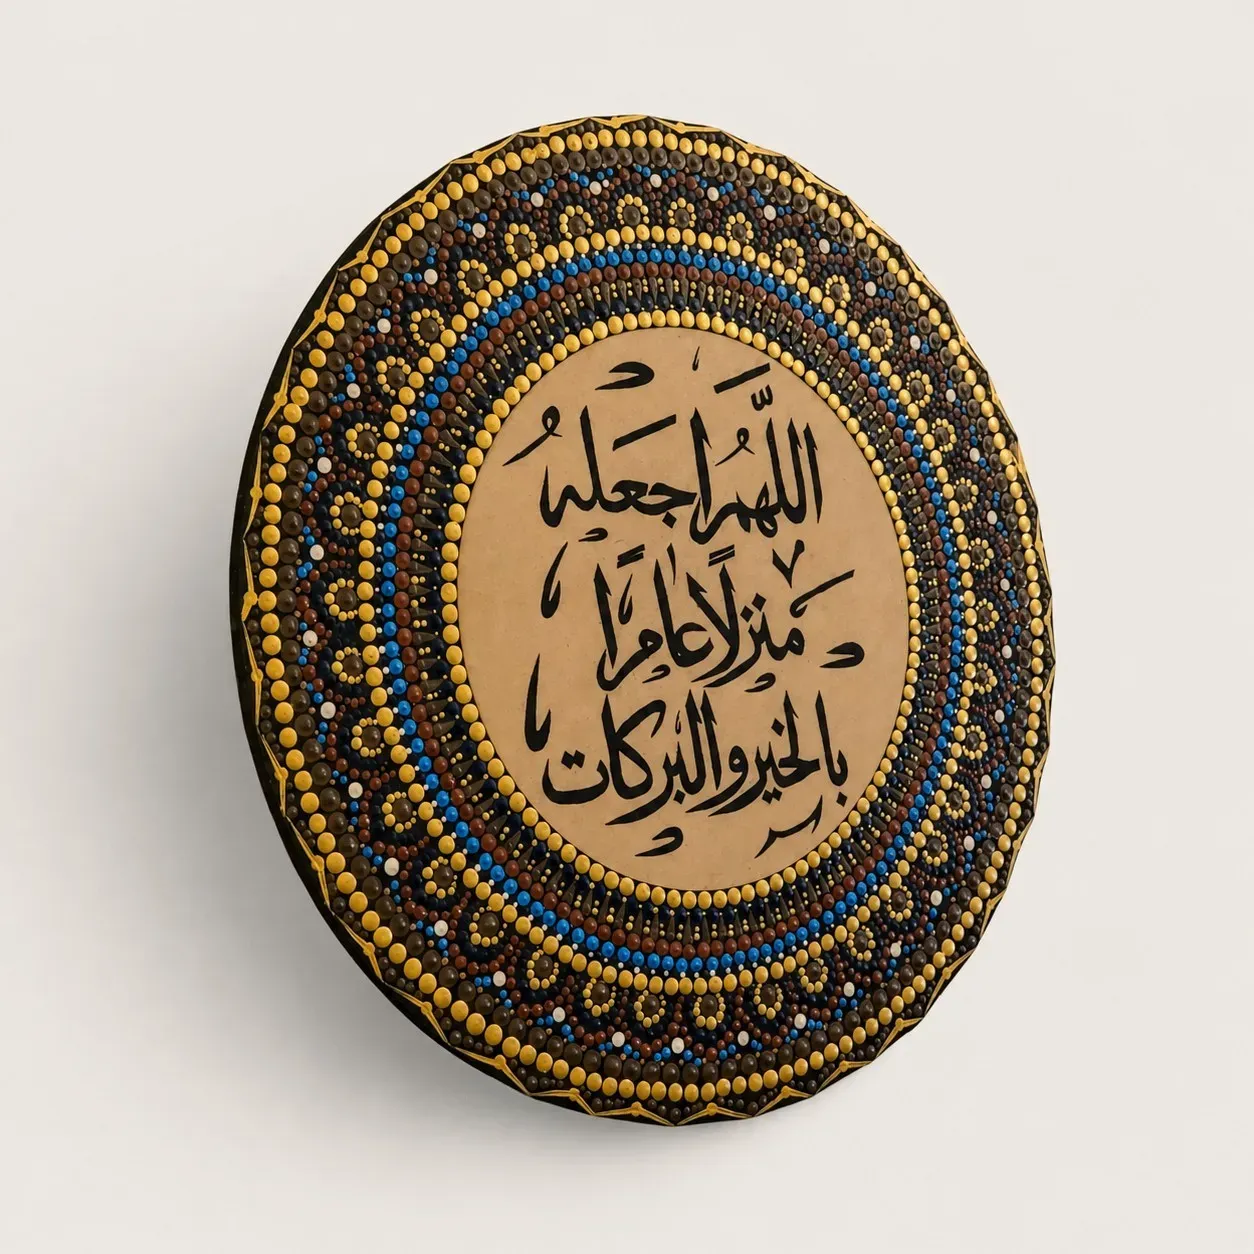 اللهم اجعله
منزلاً عامرًا
بالخير والبركات